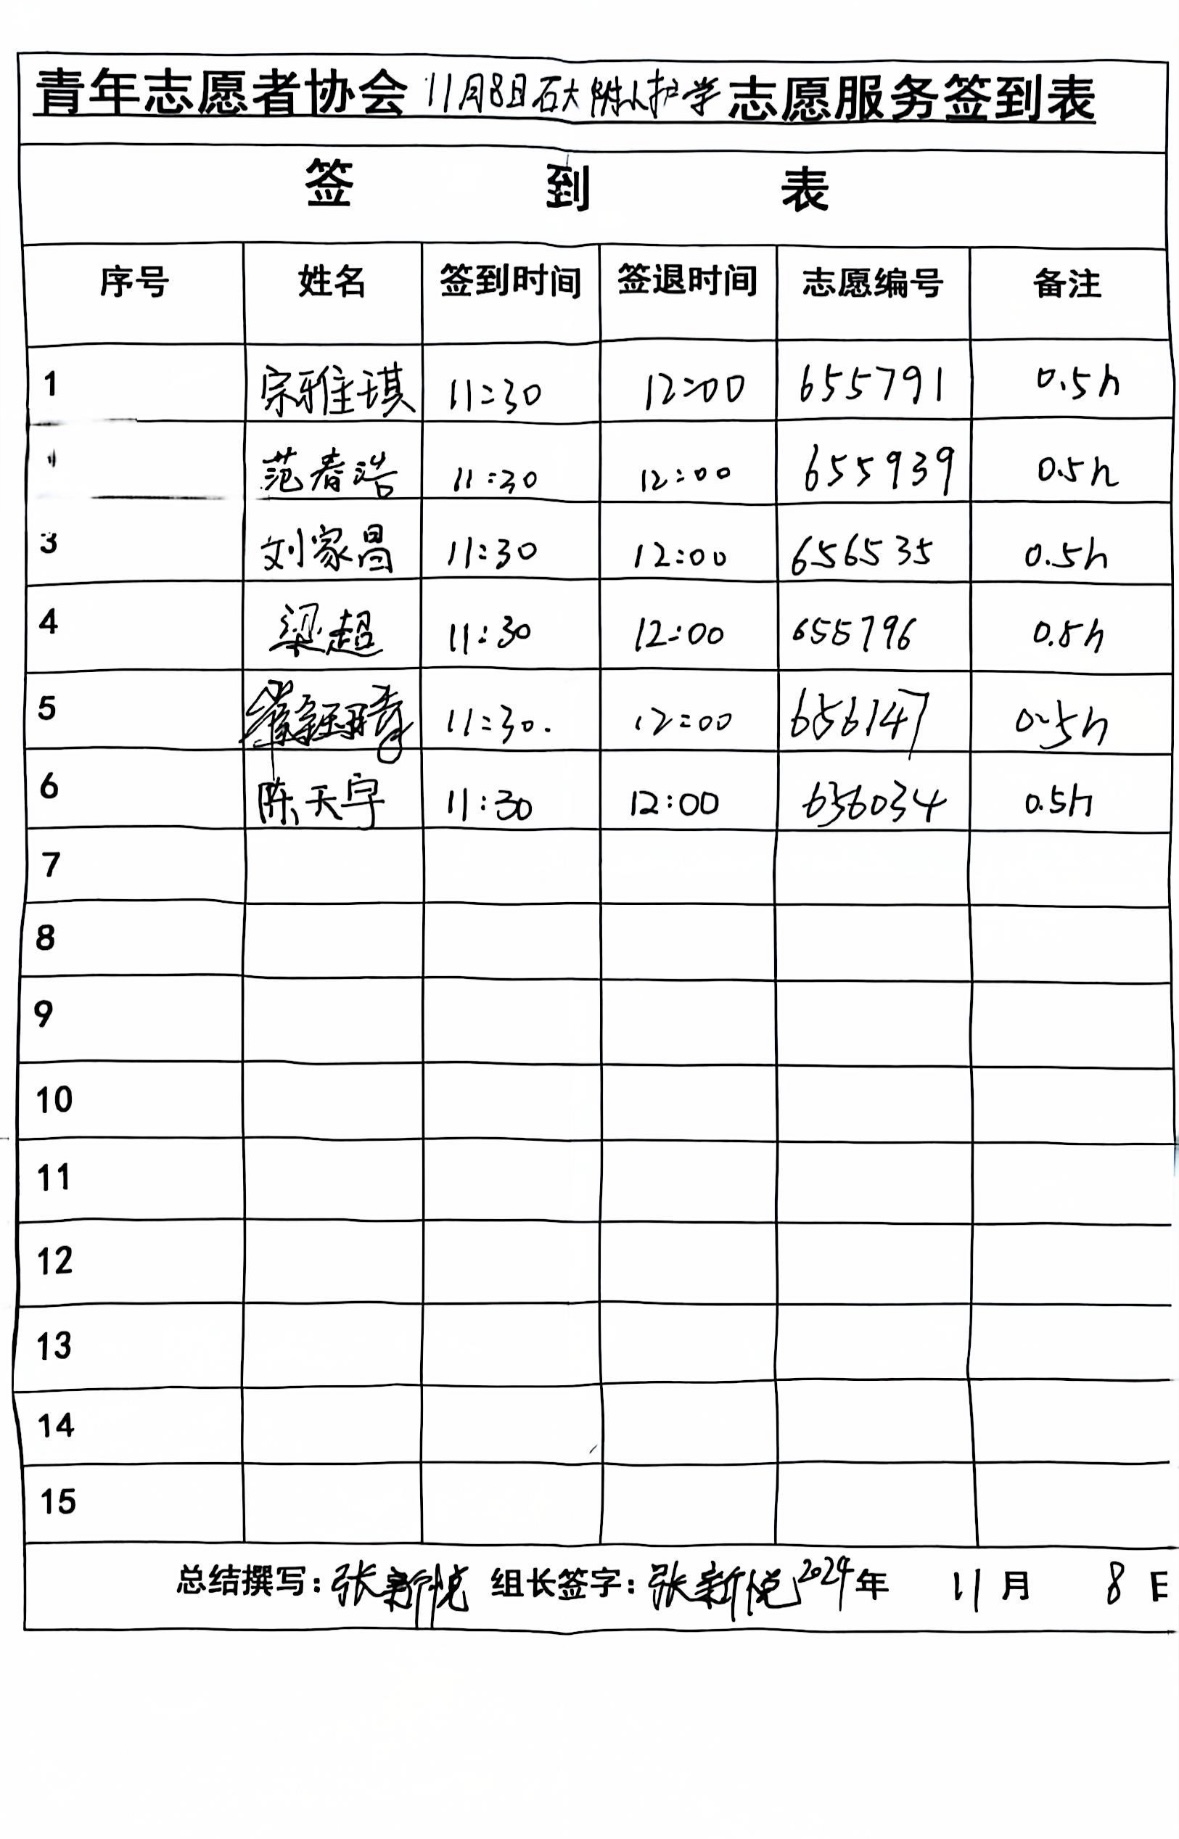 青年志愿者协会11月8日石大附小护学志愿服务签到表
签 到 表
序号 姓名 签到时间 签退时间 志愿编号 备注
1 宗雅琪 11:30 12:00 655791 0.5h
范春浩 11:30 12:00 655939 0.5h
3 刘家昌 11:30 12:00 656535 0.5h
4 梁超 11:30 12:00 655796 0.5h
5 11:30. 12:00 656147 0.5h
6 陈天宇 11:30 12:00 656034 0.5h
7
8
9
10
11
12
13
14
15
总结撰写:张新悦 组长签字:张新悦 2024年 11月 8日